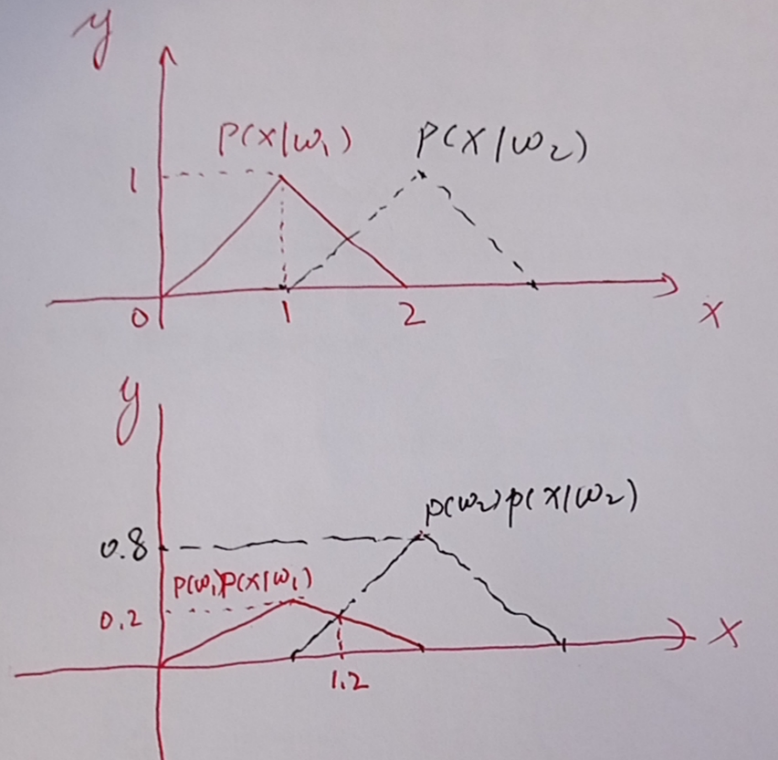 y
P(X|ω₁) P(X/ω₂)
1
0 1 2 X
y
p(ω₂)p(X/ω₂)
0.8
P(ω₁)P(X|ω₁)
0.2
1.2
X